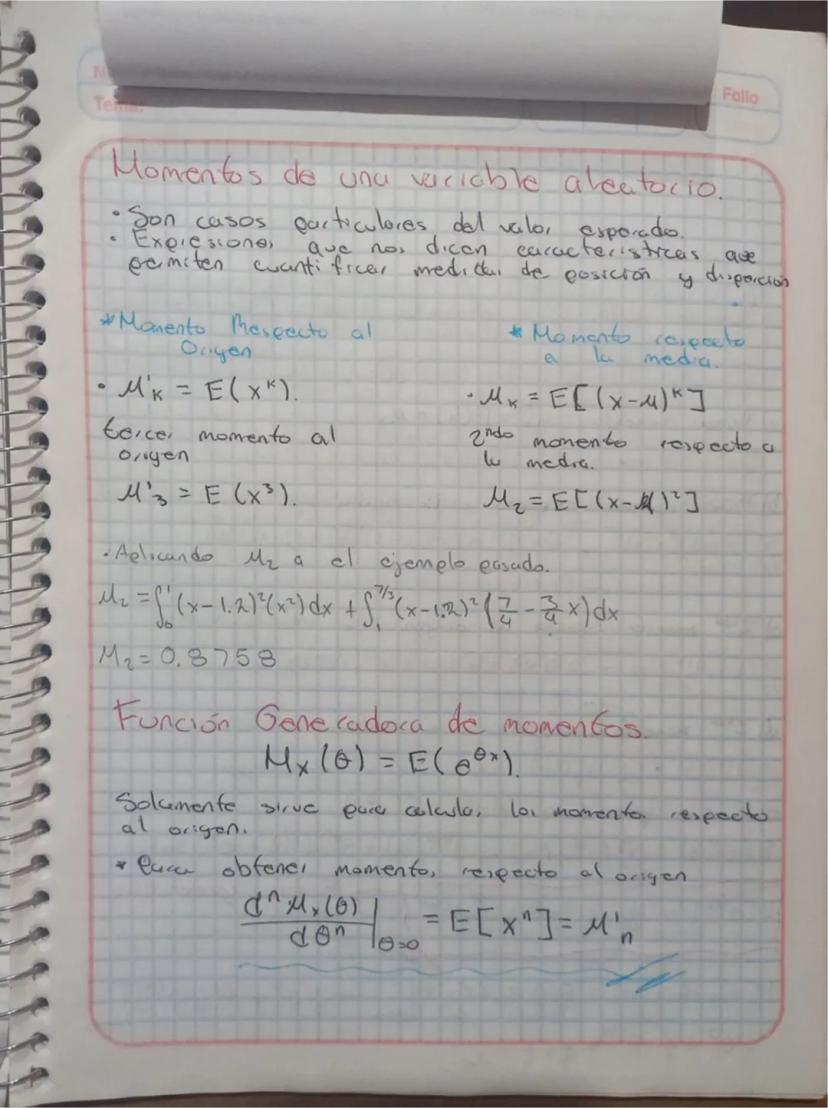 Tema:
Folio
Momentos de una variable aleatorio.
• Son casos particulares del valor esperado.
• Expresiones que nos dicen caracteristicas que
permiten cuantificar medidas de posición y disperción
*Momento Respecto al
Origen
• μ'ₖ = E(xᵏ).
tercer momento al
origen
μ'₃ = E(x³).
* Momento respecto
a la media.
• μₖ = E[(x-μ)ᵏ]
2ndo momento respecto a
la media.
μ₂ = E[(x-μ)²]
• Aplicando μ₂ a el ejemplo pasado.
μ₂ = ∫₀¹(x-1.2)²(x²)dx + ∫₁^7/3(x-1.2)²(7/4 - 3/4 x)dx
μ₂ = 0.8758
Función Generadora de momentos.
Mₓ(θ) = E(e^θx).
Solamente sirve para calcular los momentos respecto
al origen.
* Para obtener momentos respecto al origen
dⁿMₓ(θ)/dθⁿ |θ=0 = E[xⁿ] = μ'ₙ